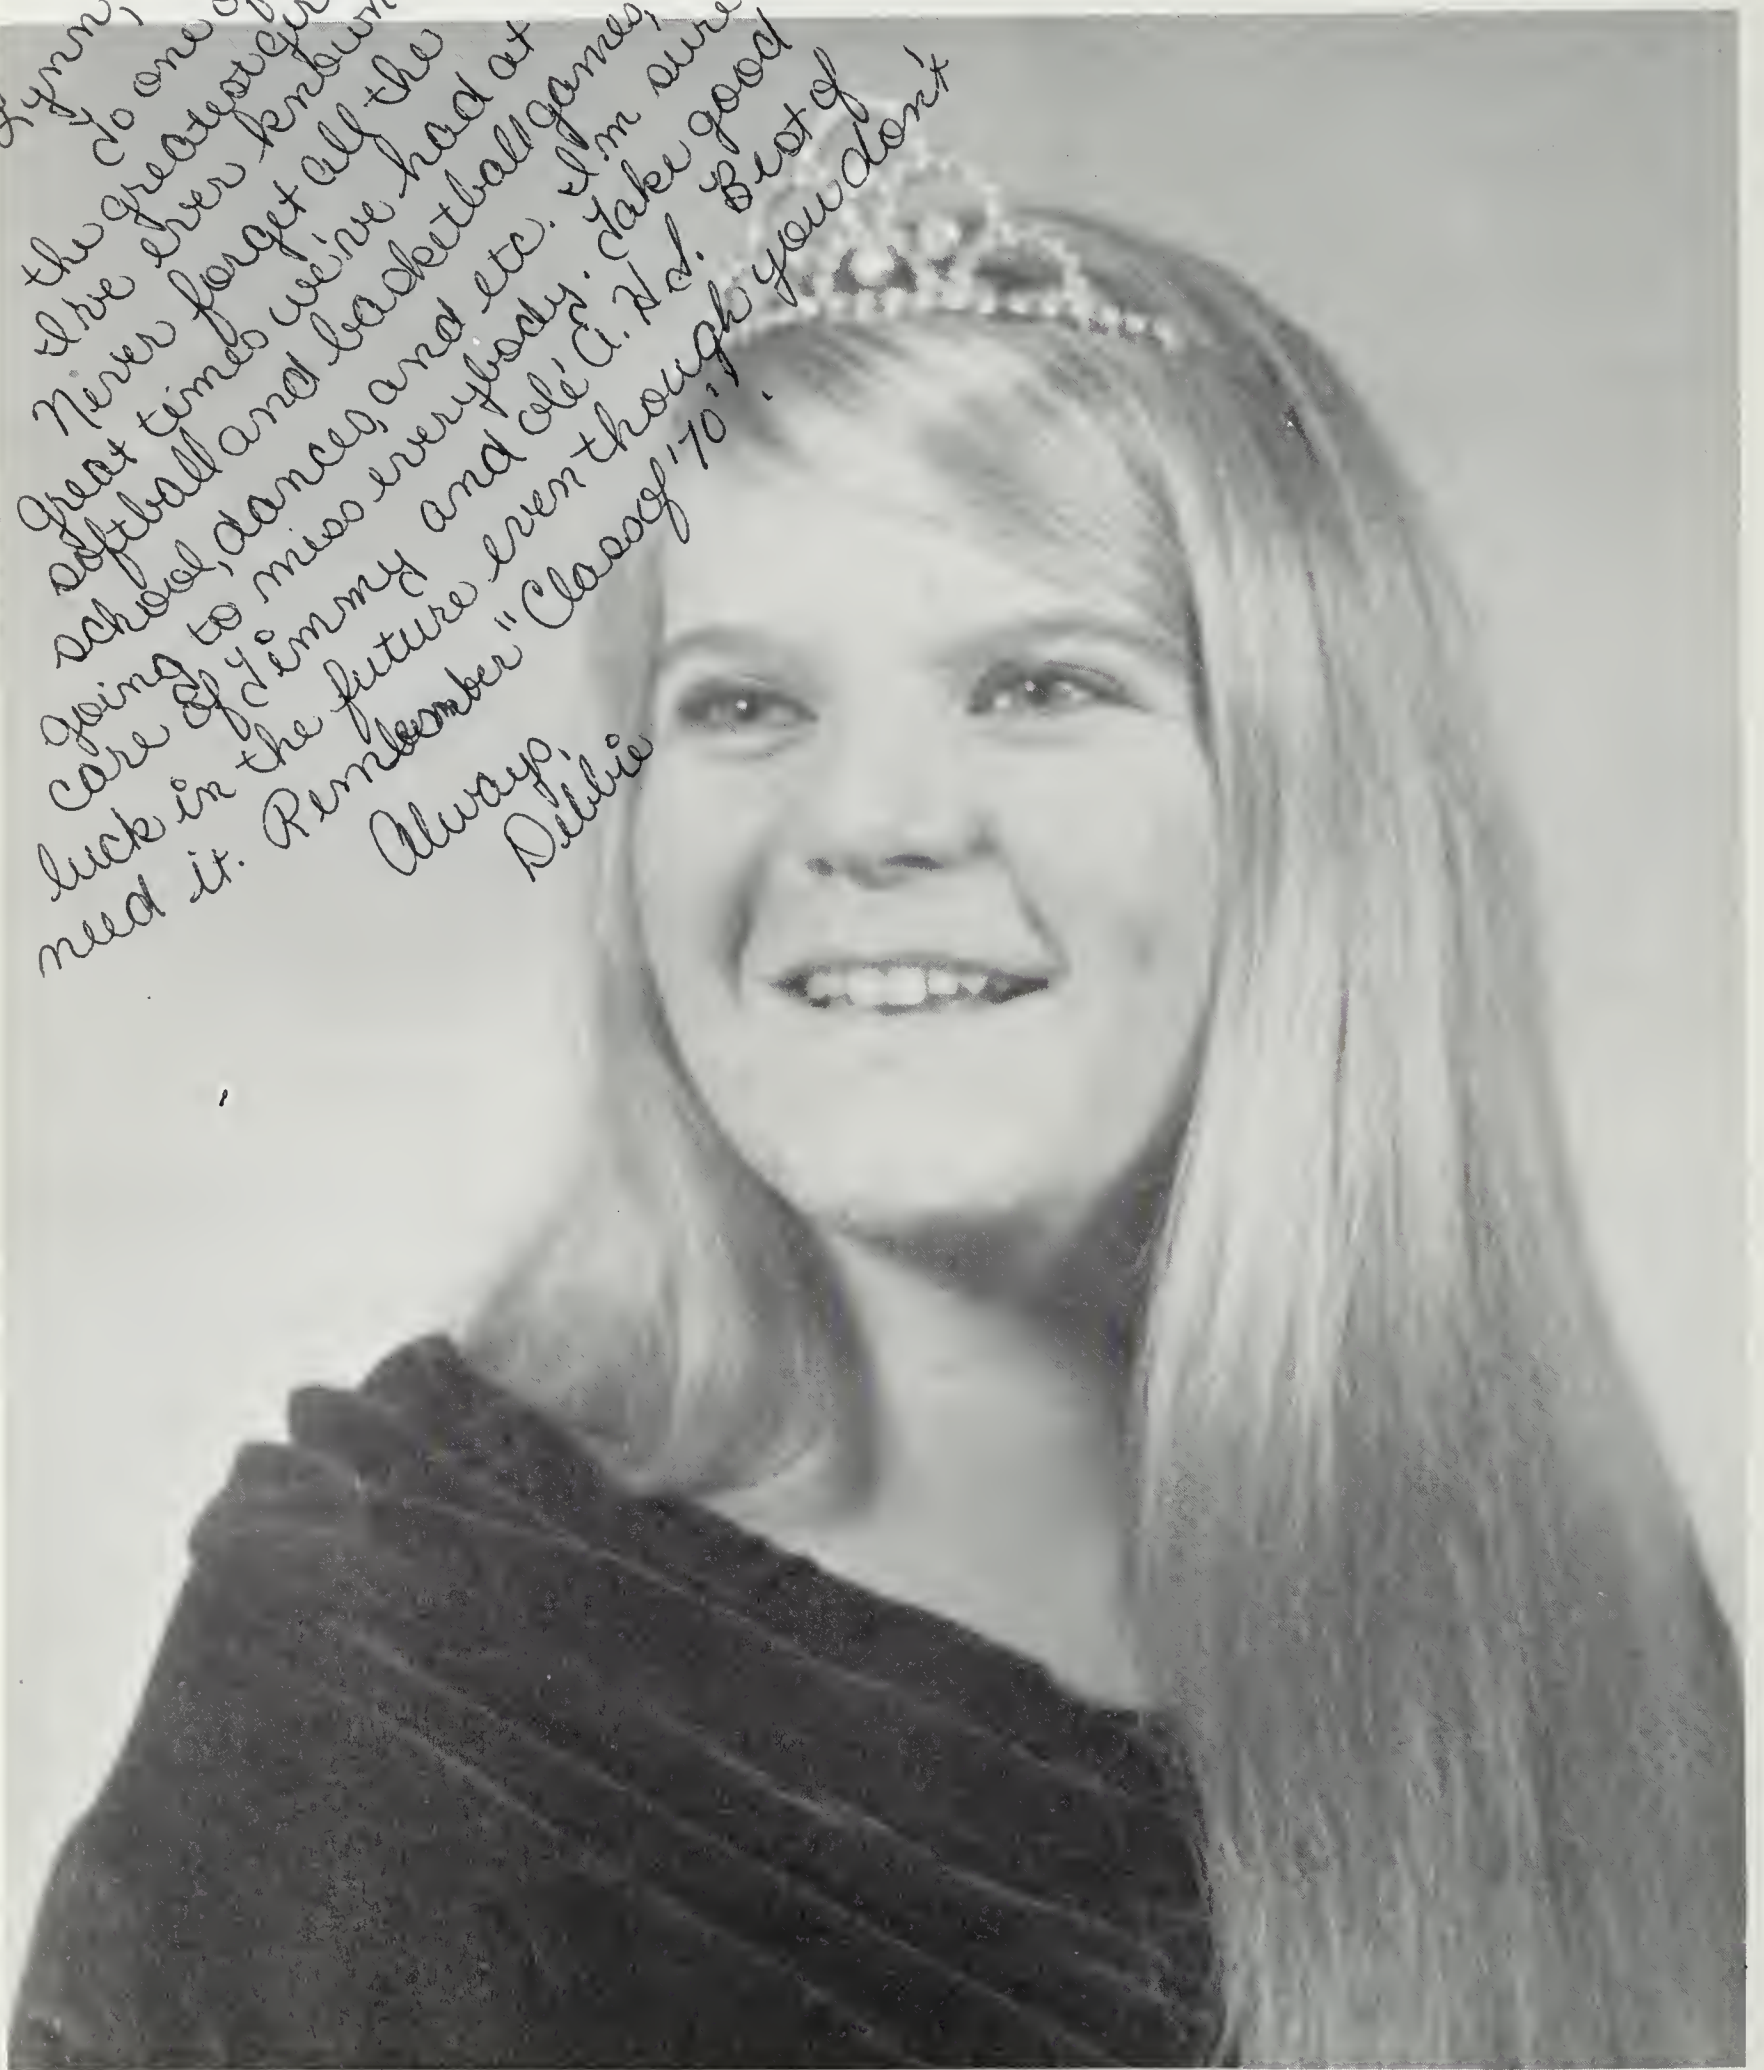 Lynn,
To one of
the greatest
I've ever known
Never forget all the
great times we've had at
softball and basketball games,
school, dances, and etc. I'm sure
going to miss everybody. Take good
care of Jimmy and olé A.H.S. Best of
luck in the future even though you don't
need it. Remember "Class of '70".
Always,
Debbie